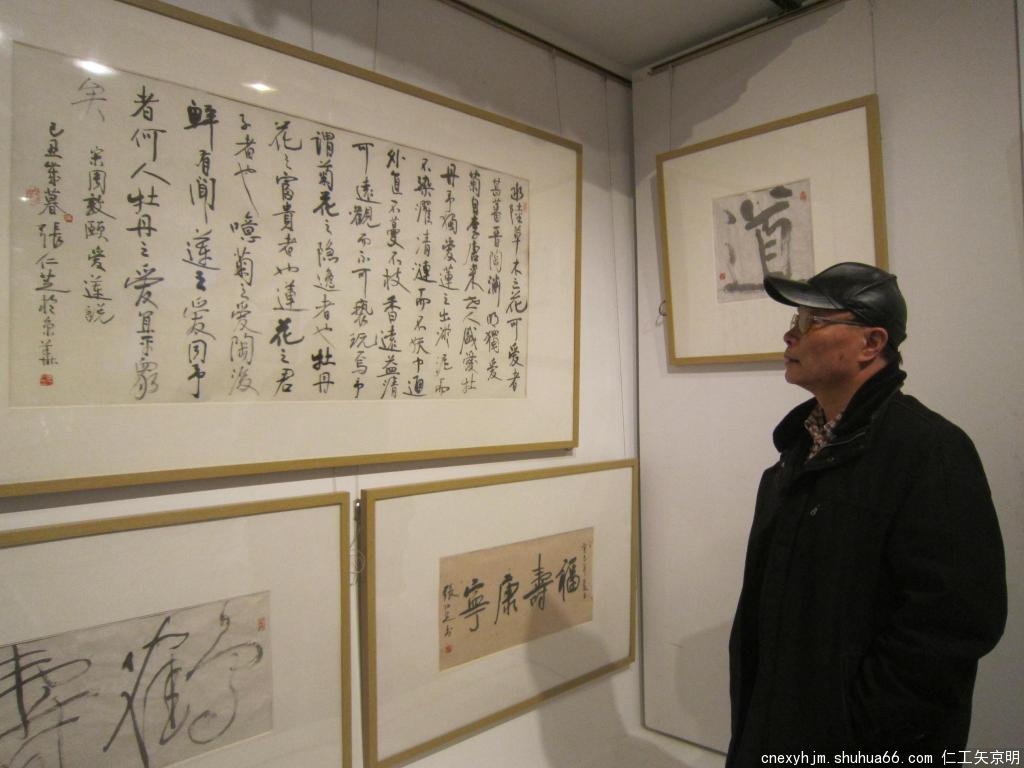 水陸草木之花可愛者
甚蕃晉陶淵明獨愛
菊自李唐来世人盛愛牡
丹予獨愛蓮之出淤泥而
不染濯清漣而不妖中通
外直不蔓不枝香遠益清
可遠觀而不可褻玩焉予
謂菊花之隱逸者也牡丹
花之富貴者也蓮花之君
子者也噫菊之愛陶後
鮮有聞蓮之愛同予
者何人牡丹之愛宜乎衆
矣
宋周敦頤愛蓮説
己丑歲暮張仁芝於京華
道
福壽康寧
張仁芝書
鶴壽
cnexyhjm.shuhua66.com 仁工矢京明